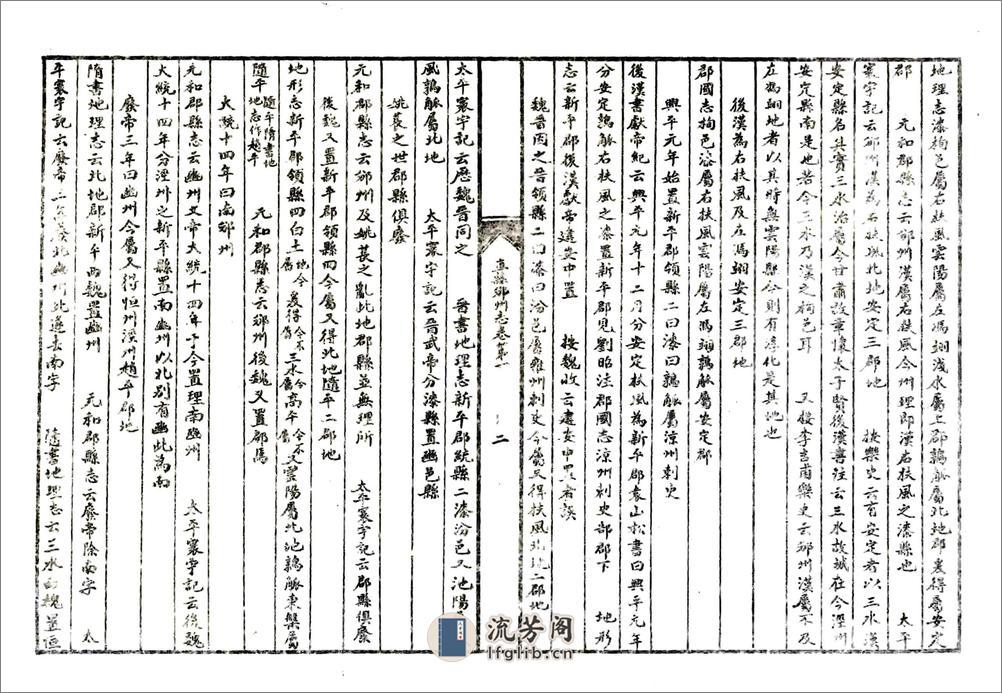 地理志漆栒邑屬右扶風雲陽屬左馮翊淺水屬上郡鶉觚屬北地郡爰得屬安定
郡　元和郡縣志云邠州漢屬右扶風今州理即漢右扶風之漆縣也　太平
寰宇記云邠州漢為右扶風北地安定三郡地　按樂史云有安定者以三水漢
安定縣名其實三水治屬今甘肅故章懷太子賢後漢書注云三水故城在今涇州
安定縣南是地若今三水乃漢之栒邑耳　又按李吉甫樂史云邠州漢屬不及
左馮翊地者以其時無雲陽縣今則有淳化是其地也
後漢為右扶風及左馮翊安定三郡地
郡國志栒邑漆屬右扶風雲陽屬左馮翊鶉觚屬安定郡
興平元年始置新平郡領縣二曰漆曰鶉觚屬涼州刺史
後漢書獻帝紀云興平元年十二月分安定扶風為新平郡袁山松書曰興平元年
分安定鶉觚右扶風之漆置新平郡見劉昭注郡國志涼州刺史部郡下　地形
志云新平郡後漢獻帝建安中置　按魏收云建安中置者誤
魏晉因之晉領縣二曰漆曰汾邑屬雍州刺史今屬又得扶風北地二郡地
直隸邠州志卷第一
二
太平寰宇記云歷魏晉同之　晉書地理志新平郡統縣二漆汾邑又池陽
風鶉觚屬北地　太平寰宇記云晉武帝分漆縣置豳邑縣
姚萇之世郡縣俱廢
元和郡縣志云邠州及姚萇之亂此地郡縣並無理所　太平寰宇記云郡縣俱廢
後魏又置新平郡領縣四今屬又得北地隨平二郡地
地形志新平郡領縣四白土　爰得　三水　高平　又雲陽屬北地鶉觚東槃屬
隨平隨平隋書地地志作趙平　元和郡縣志云邠州後魏又置郡焉
大統十四年曰南邠州
元和郡縣志云豳州文帝大統十四年于今置理南豳州　太平寰宇記云後魏
大統十四年分涇州之新平縣置南豳州以北別有豳此為南
廢帝三年曰豳州今屬又得恒州涇州趙平郡地
隋書地理志云北地郡新平西魏置豳州　元和郡縣志云廢帝除南字　太
平寰宇記云廢帝二年　北豳州此遂去南字　隋書地理志云三水西魏置恒
流芳阁
lfglib.cn